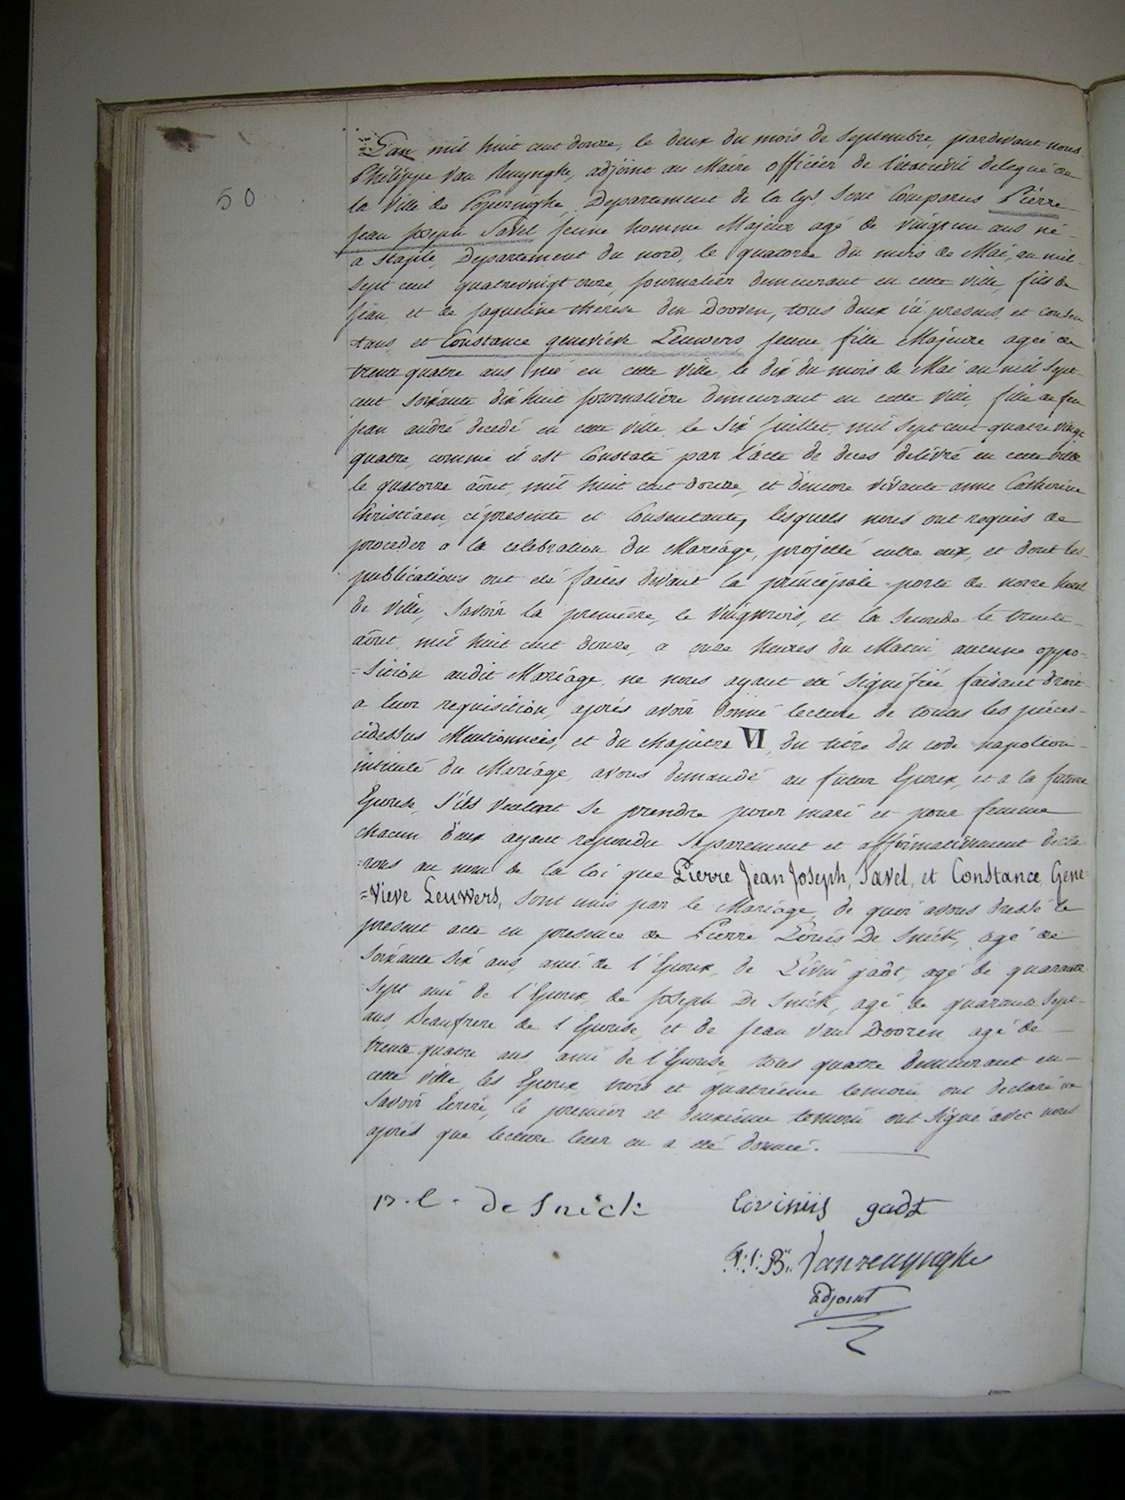 50
L'an mil huit cent douze, le deux du mois de Septembre, pardevant nous
Philippe Van Renynghe, adjoint au Maire officier de l'etat civil delegué de
la Ville de Poperinghe, Departement de la Lys sont Comparus Pierre
Jean Joseph Savel jeune homme Majeur agé de vingt un ans né
a Staple, Departement du nord, le quatorze du mois de Mai, an mil
sept cent quatrevingt onze, journalier demeurant en cette ville, fils de
Jean, et de Jaqueline therese den Dooven, tous deux ici presens et consen
tans, et Constance genevieve Leuwers jeune fille Majeure agée de
trente quatre ans, née en cette ville, le dix du mois de Mai an mil sept
cent soixante dix huit journalière demeurant en cette ville, fille de feu
Jean andré decedé en cette ville le six juillet, mil sept cent quatre vingt
quatre, comme il est Constaté par l'acte de deces delivré en cette ville
le quatorze aôut, mil huit cent douze, et d'encore vivante anne Catherine
Christiaen, ci presente et Consentante, lesquels nous ont requis de
proceder a la celebration du Mariage, projetté entre eux, et dont les
publications ont eté faites devant la principale porte de notre hotel
de ville, Savoir la premiere, le vingtrois, et la Seconde le trente
aôut, mil huit cent douze, a onze heures du Matin, aucune oppo-
=sition audit Mariage, ne nous ayant eté signifiée, faisant droit
a leur requisition, aprés avoir donné lecture de toutes les piéces
cidessus Mentionnées, et du chapitre VI, du titre du code napoléon
intitulé du Mariage, avons demandé au futur Epoux, et a la future
Epouse, S'ils veulent se prendre pour mari et pour femme
chacun d'eux ayant repondu separement et affirmativement decla
=rons au nom de la loi que Pierre Jean Joseph, Savel, et Constance, Gene
=vieve Leuwers, sont unis par le Mariage, de quoi avons dressé le
present acte en presence de Pierre Louis De Snick, agé de
soixante six ans, ami de l'Epoux, de Livin gadt, agé de quarante
sept ami de l'Epoux, de Joseph De Snick, agé de quarante sept
ans, Beaufrere de l'Epouse, et de Jean Van Dooren, agé de
trente quatre ans, ami de l'Epouse, tous quatre demeurant en
cette ville, les Epoux, trois et quatriéme temoin ont declaré ne
savoir Ecrire, le premier et deuxiéme temoin ont signé avec nous
aprés que lecture leur en a eté donnée.
P. L. De Snick Livinus gadt
P: J: B: Vanrenynghe
adjoint